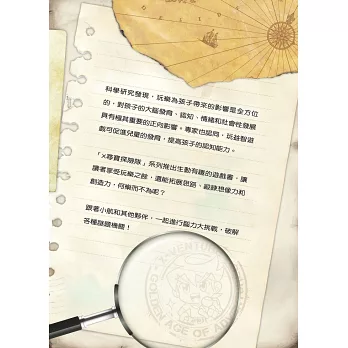 科學研究發現，玩樂為孩子帶來的影響是全方位
的，對孩子的大腦發育、認知、情緒和社會性發展
具有極其重要的正向影響。專家也認同，玩益智遊
戲可促進兒童的發育，提高孩子的認知能力。
「X尋寶探險隊」系列推出生動有趣的遊戲書，讓
讀者享受玩樂之餘，還能拓展思路、鍛鍊想像力和
創造力，何樂而不為呢？
跟著小航和其他夥伴，一起進行腦力大挑戰，破解
各種謎題機關！